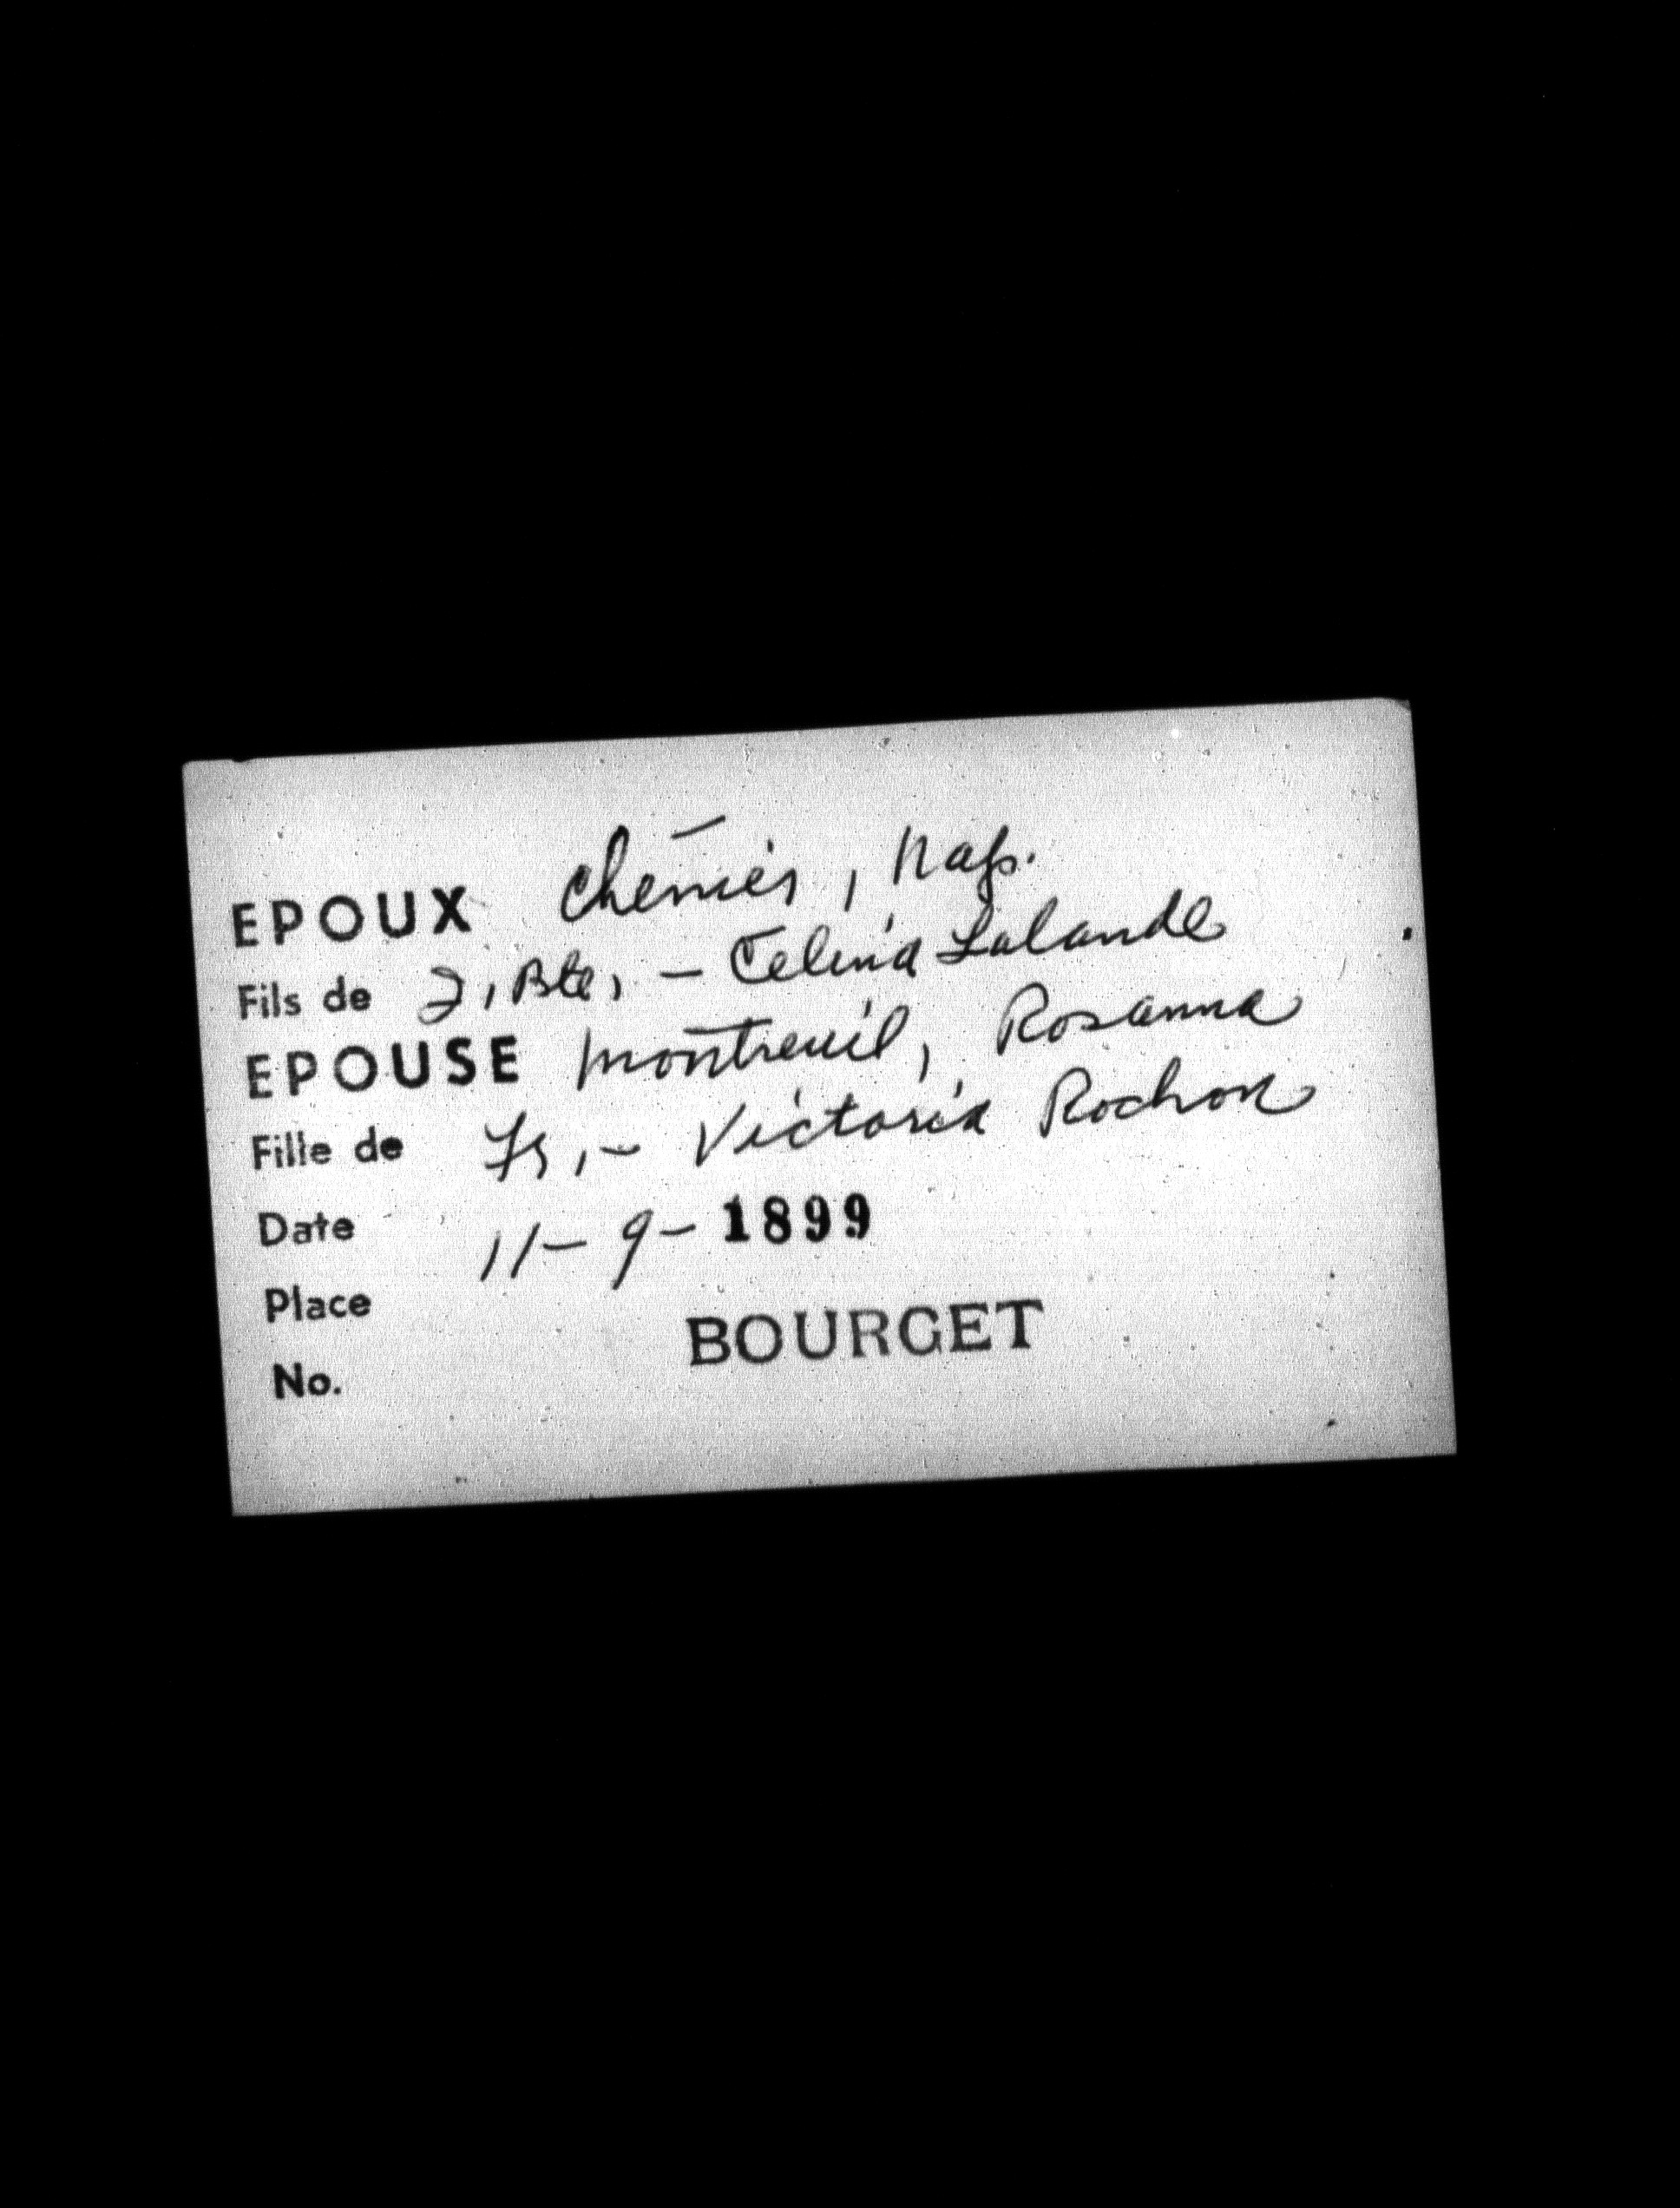 EPOUX Chénier, Nap.
Fils de J, Bte, - Celina Lalande
EPOUSE Montreuil, Rosanna
Fille de Fs, - Victoria Rochon
Date 11-9-1899
Place
BOURGET
No.